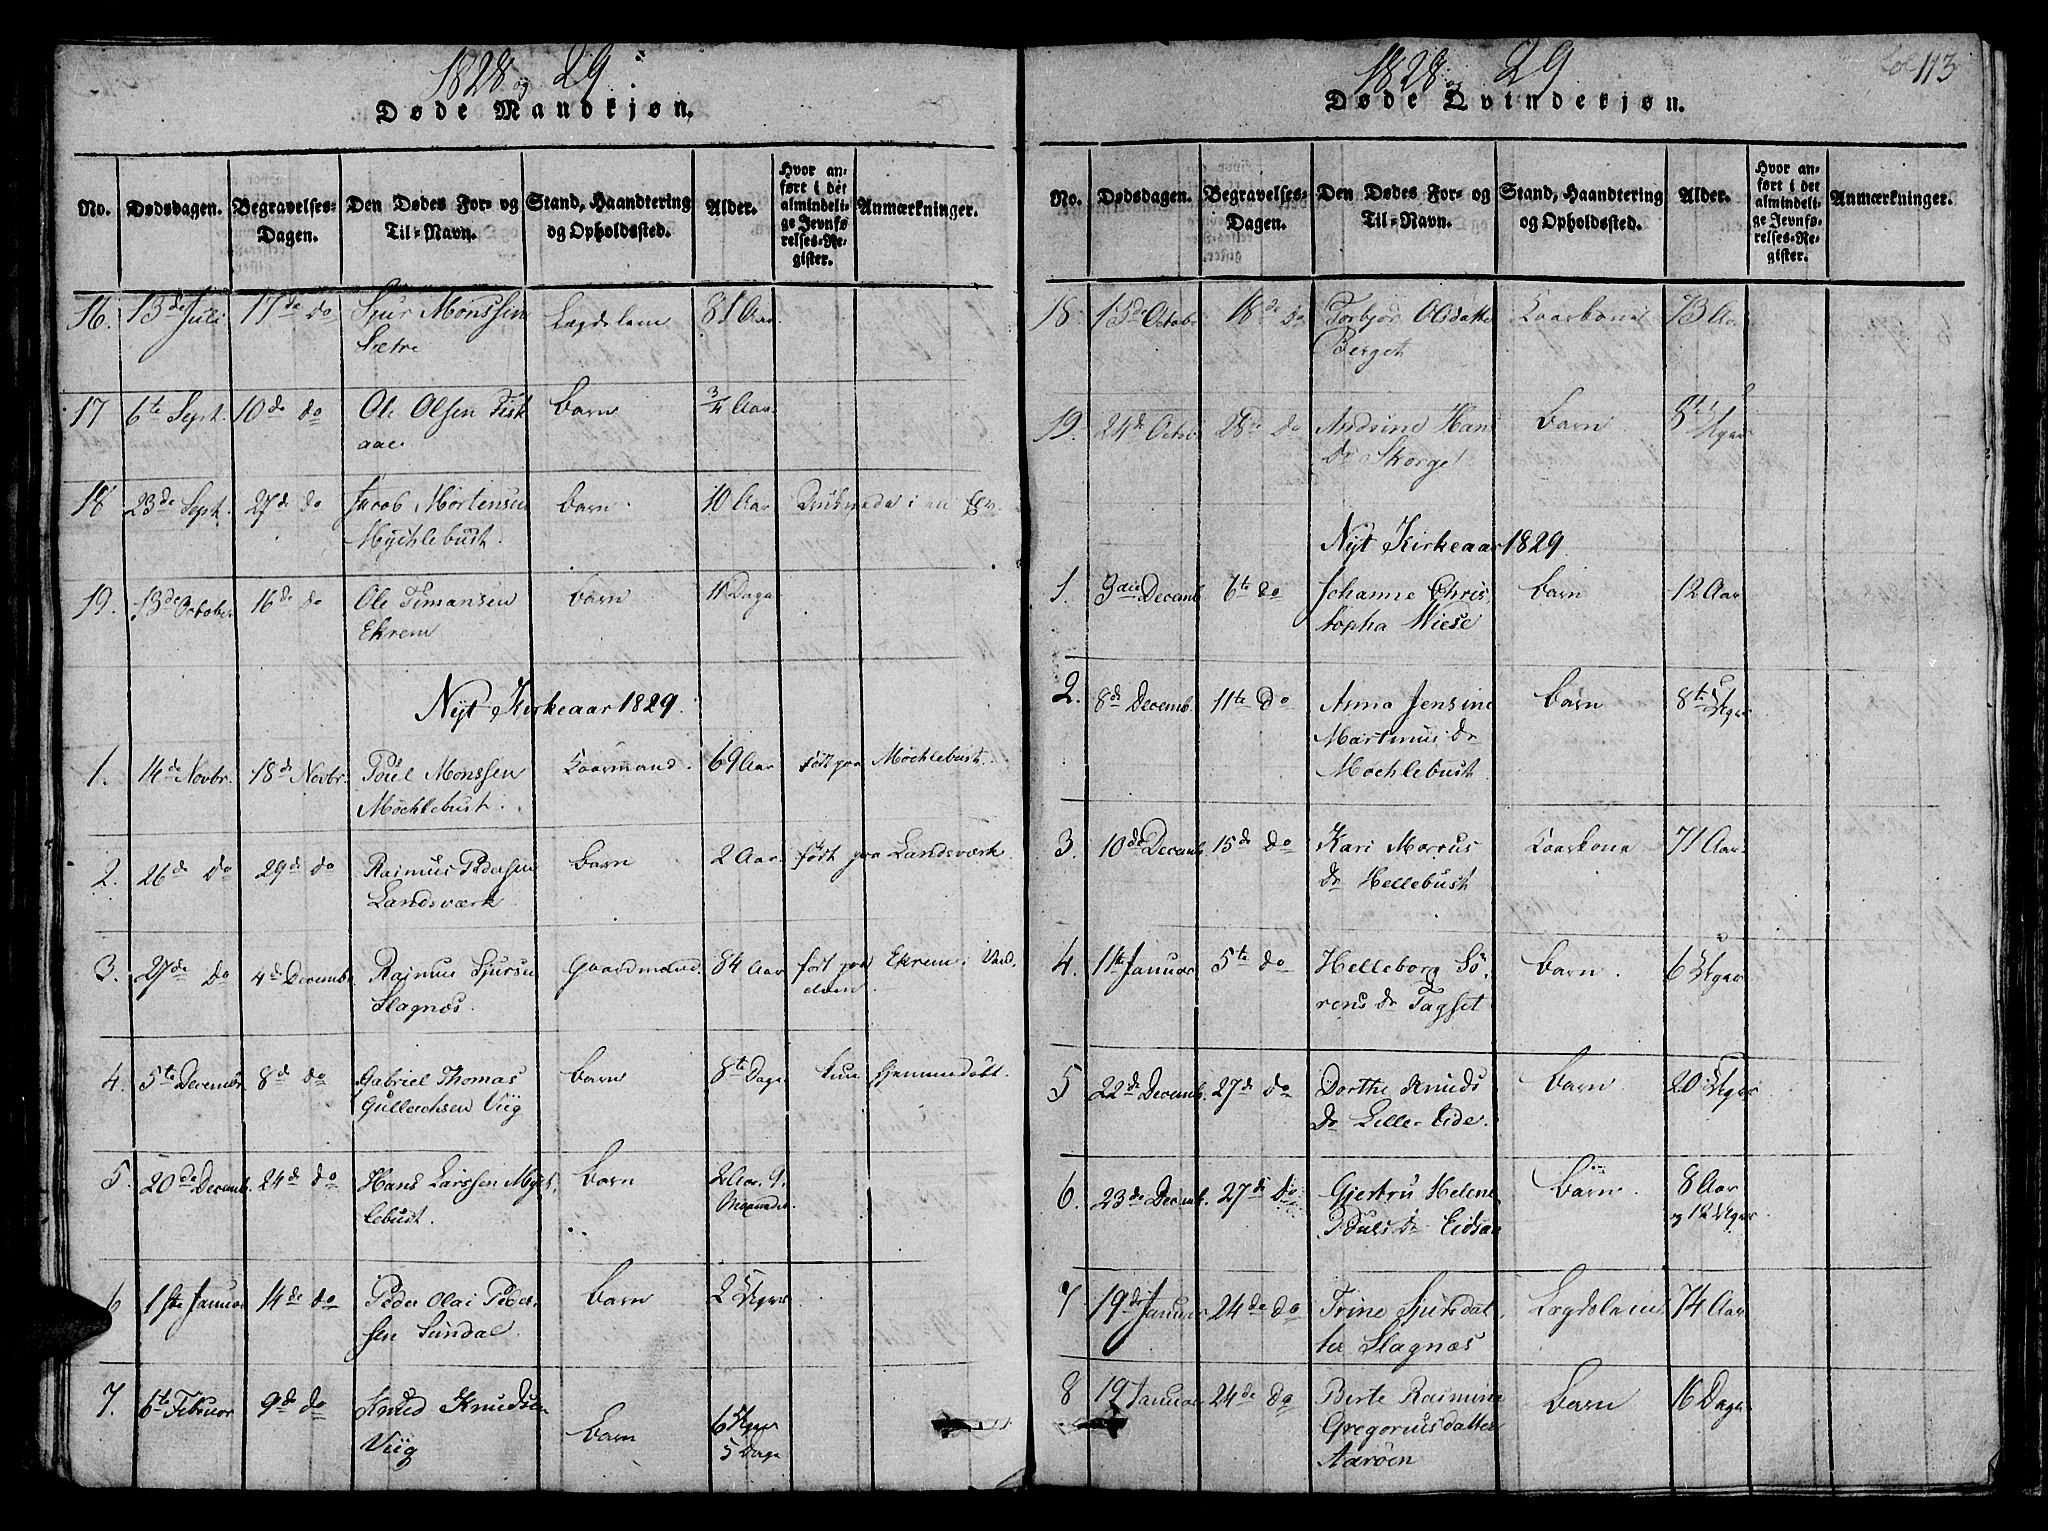 1828 og 29.
Døde Mandkjøn.
No. Dødsdagen. Begravelses-Dagen. Den Dødes For- og Til-Navn. Stand, Haandtering og Opholdssted. Alder. Hvor anført i det almindelige Jevnførelses-Register. Anmærkninger.
16. 13de Juli 17de do Sjur Monssen Lægdslem 81 Aar.
Sætre
17 6te Sept. 10de do Ole Olsen Fisk Barn 3/4 Aar.
aae
18 23de Sept. 27de do Jacob Mortensen Barn. 10 Aar Druknede i en Elv.
Mychlebust.
19. 13de October 16de do Ole Timansen Barn 11 Dage
Ekrem
Nyt Kirkeaar 1829.
1. 14de Novbr. 18de Novbr. Poul Monssen Kaarmand. 69 Aar født paa Mochlebust.
Mochlebust.
2. 26de Do 29de do Rasmus Pedersen Barn 2 Aar. født paa Landsværk.
Landsværk
3. 27de Do 4de Decembr Rasmus Sjursen Gaardmand. 84 Aar født paa Ekrem i Vand
Slagnæs. elven.
4. 5te Decembr 8de do Gabriel Thomas Barn 8te Dage kun hjemmedøbt.
Gullachsen Viig
5. 20de Decemb. 24de do Hans Larssen Myck Barn 2 Aar. 9.
lebust. Maaneder.
6 1ste Januar 14de do Peder Olai Peder- Barn 2 Uger
sen Sundal
7. 6te Februar 9de do Knud Knudsen Barn 6 Uger
Viig 5 Dage
1828 og 29
fol 113
Døde Qvindekjøn.
No. Dødsdagen. Begravelses-Dagen. Den Dødes For- og Til-Navn. Stand, Haandtering og Opholdssted. Alder. Hvor anført i det almindelige Jevnførelses-Register. Anmærkninger.
18 15de Octobr 18de Do Torbjør Olsdatter Kaarkone 73 Aar
Berget
19. 24de Octob 28de Do Andrine Hans Barn 8te Uger
Dr Skorge
Nyt Kirkeaar 1829
1. 3die Decemb. 6te do Johanne Chris Barn 12 Aar
topha Wiese
2. 8de Decemb. 11te Do Anna Jensine Barn 8te Uger
Martinus Dr
Mochlebust
3. 10de Decemb. 15de Do Kari Marcus Kaarkone 71 Aar.
Dr Hellebust
4. 1ste Januar 5te do Helleborg Sö- Barn. 6 Uger
rens Dr Tagset
5 22de Decemb. 27de Do Dorthe Knuds Barn 20 Uger
Dr Lille-Eide.
6. 23de Decemb. 27de Do Gjertru Helene Barn. 8 Aar
Pouls Dr Eidsaa og 12 Uger
7 19de Januar 24de do Trine Sjursdat- Lægdslem 74 Aar
ter Slagnæs
8 19 Januar 24de Do Berte Rasmine Barn 16 Dage
Gregoriusdatter
Aaröen